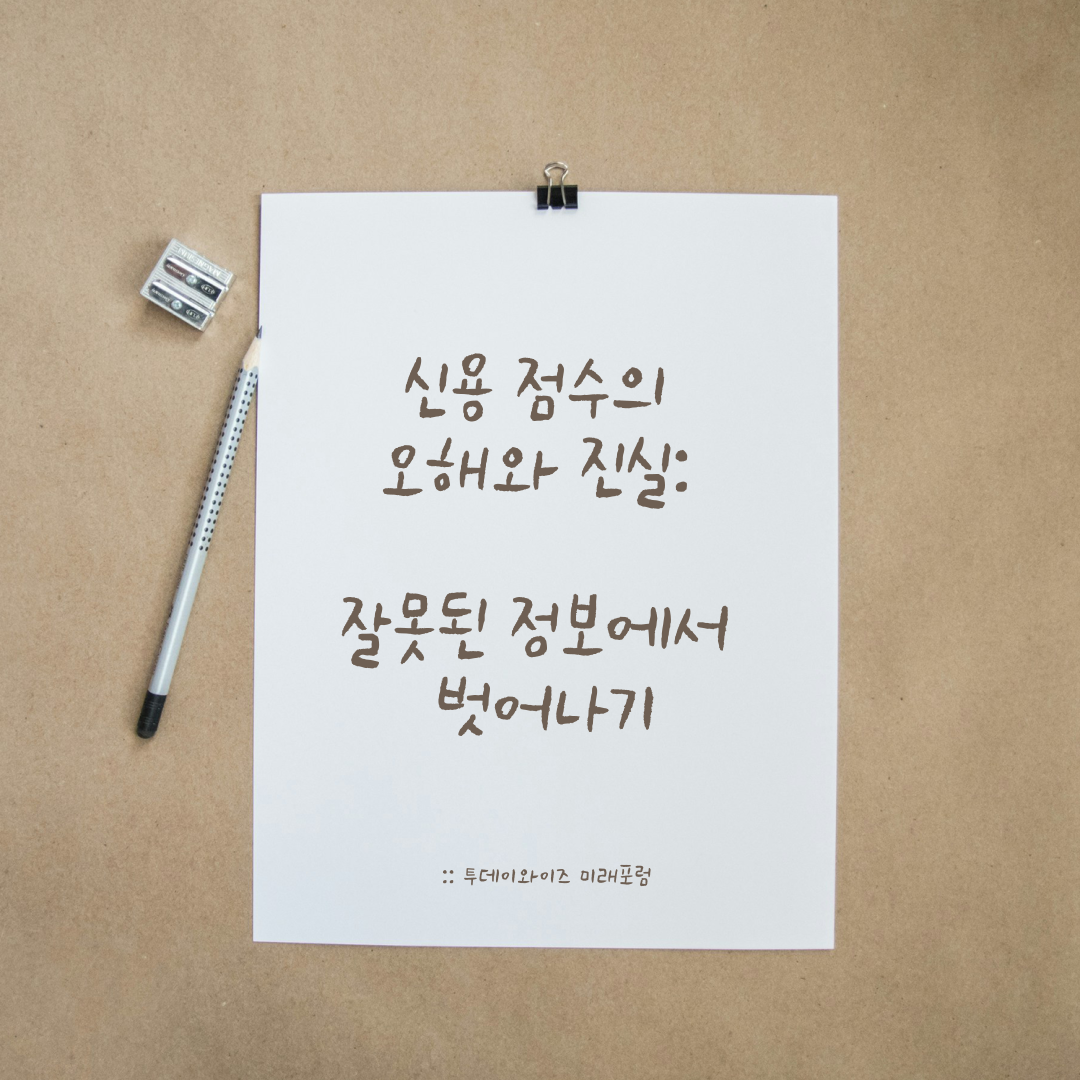 신용 점수의
오해와 진실:
잘못된 정보에서
벗어나기
:: 투데이와이즈 미래포럼